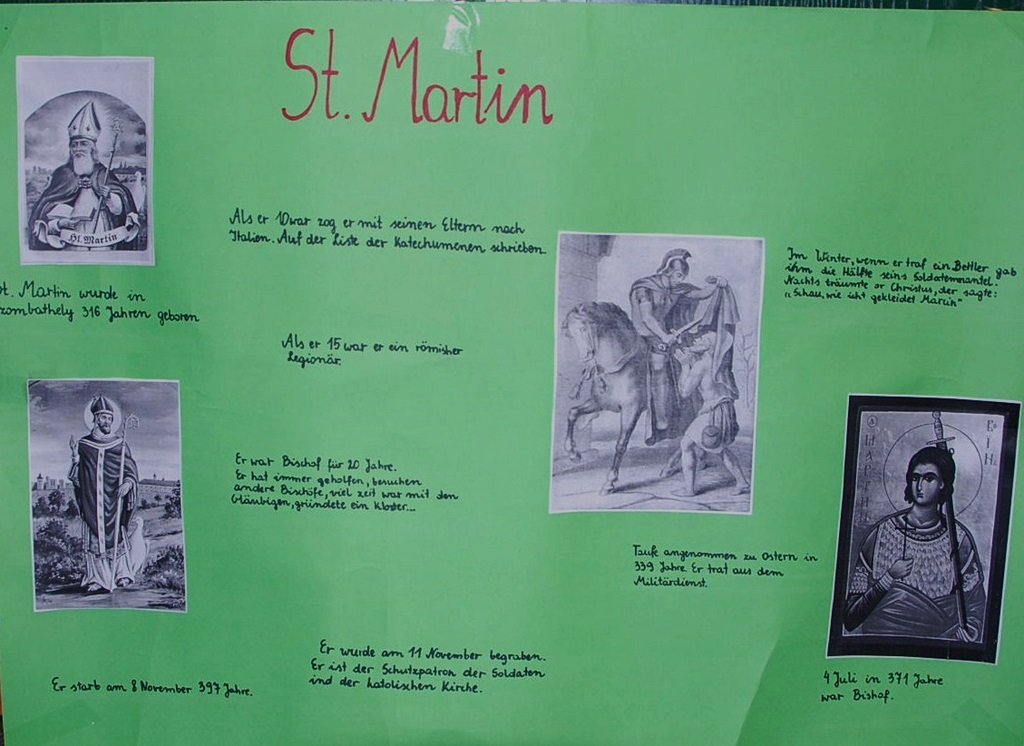 St. Martin
Hl. Martin
t. Martin wurde in
zombathely 316 Jahren geboren
Als er 10 war zog er mit seinen Eltern nach
Italien. Auf der Liste der Katechumenen schrieben.
Als er 15 war er ein römischer
Legionär.
Er war Bischof für 20 Jahre.
Er hat immer geholfen, besuchen
andere Bischöfe, viel zeit war mit den
Gläubigen, gründete ein Kloster...
Im Winter, wenn er traf ein Bettler gab
ihm die Hälfte seins Soldatenmantel.
Nachts träumte er Christus, der sagte:
"Schau, wie ich gekleidet Martin"
Taufe angenommen zu Ostern in
339 Jahre. Er trat aus dem
Militärdienst.
4 Juli in 371 Jahre
war Bischof.
Er wurde am 11 November begraben.
Er ist der Schutzpatron der Soldaten
ind der katolischen Kirche.
Er starb am 8 November 397 Jahre.